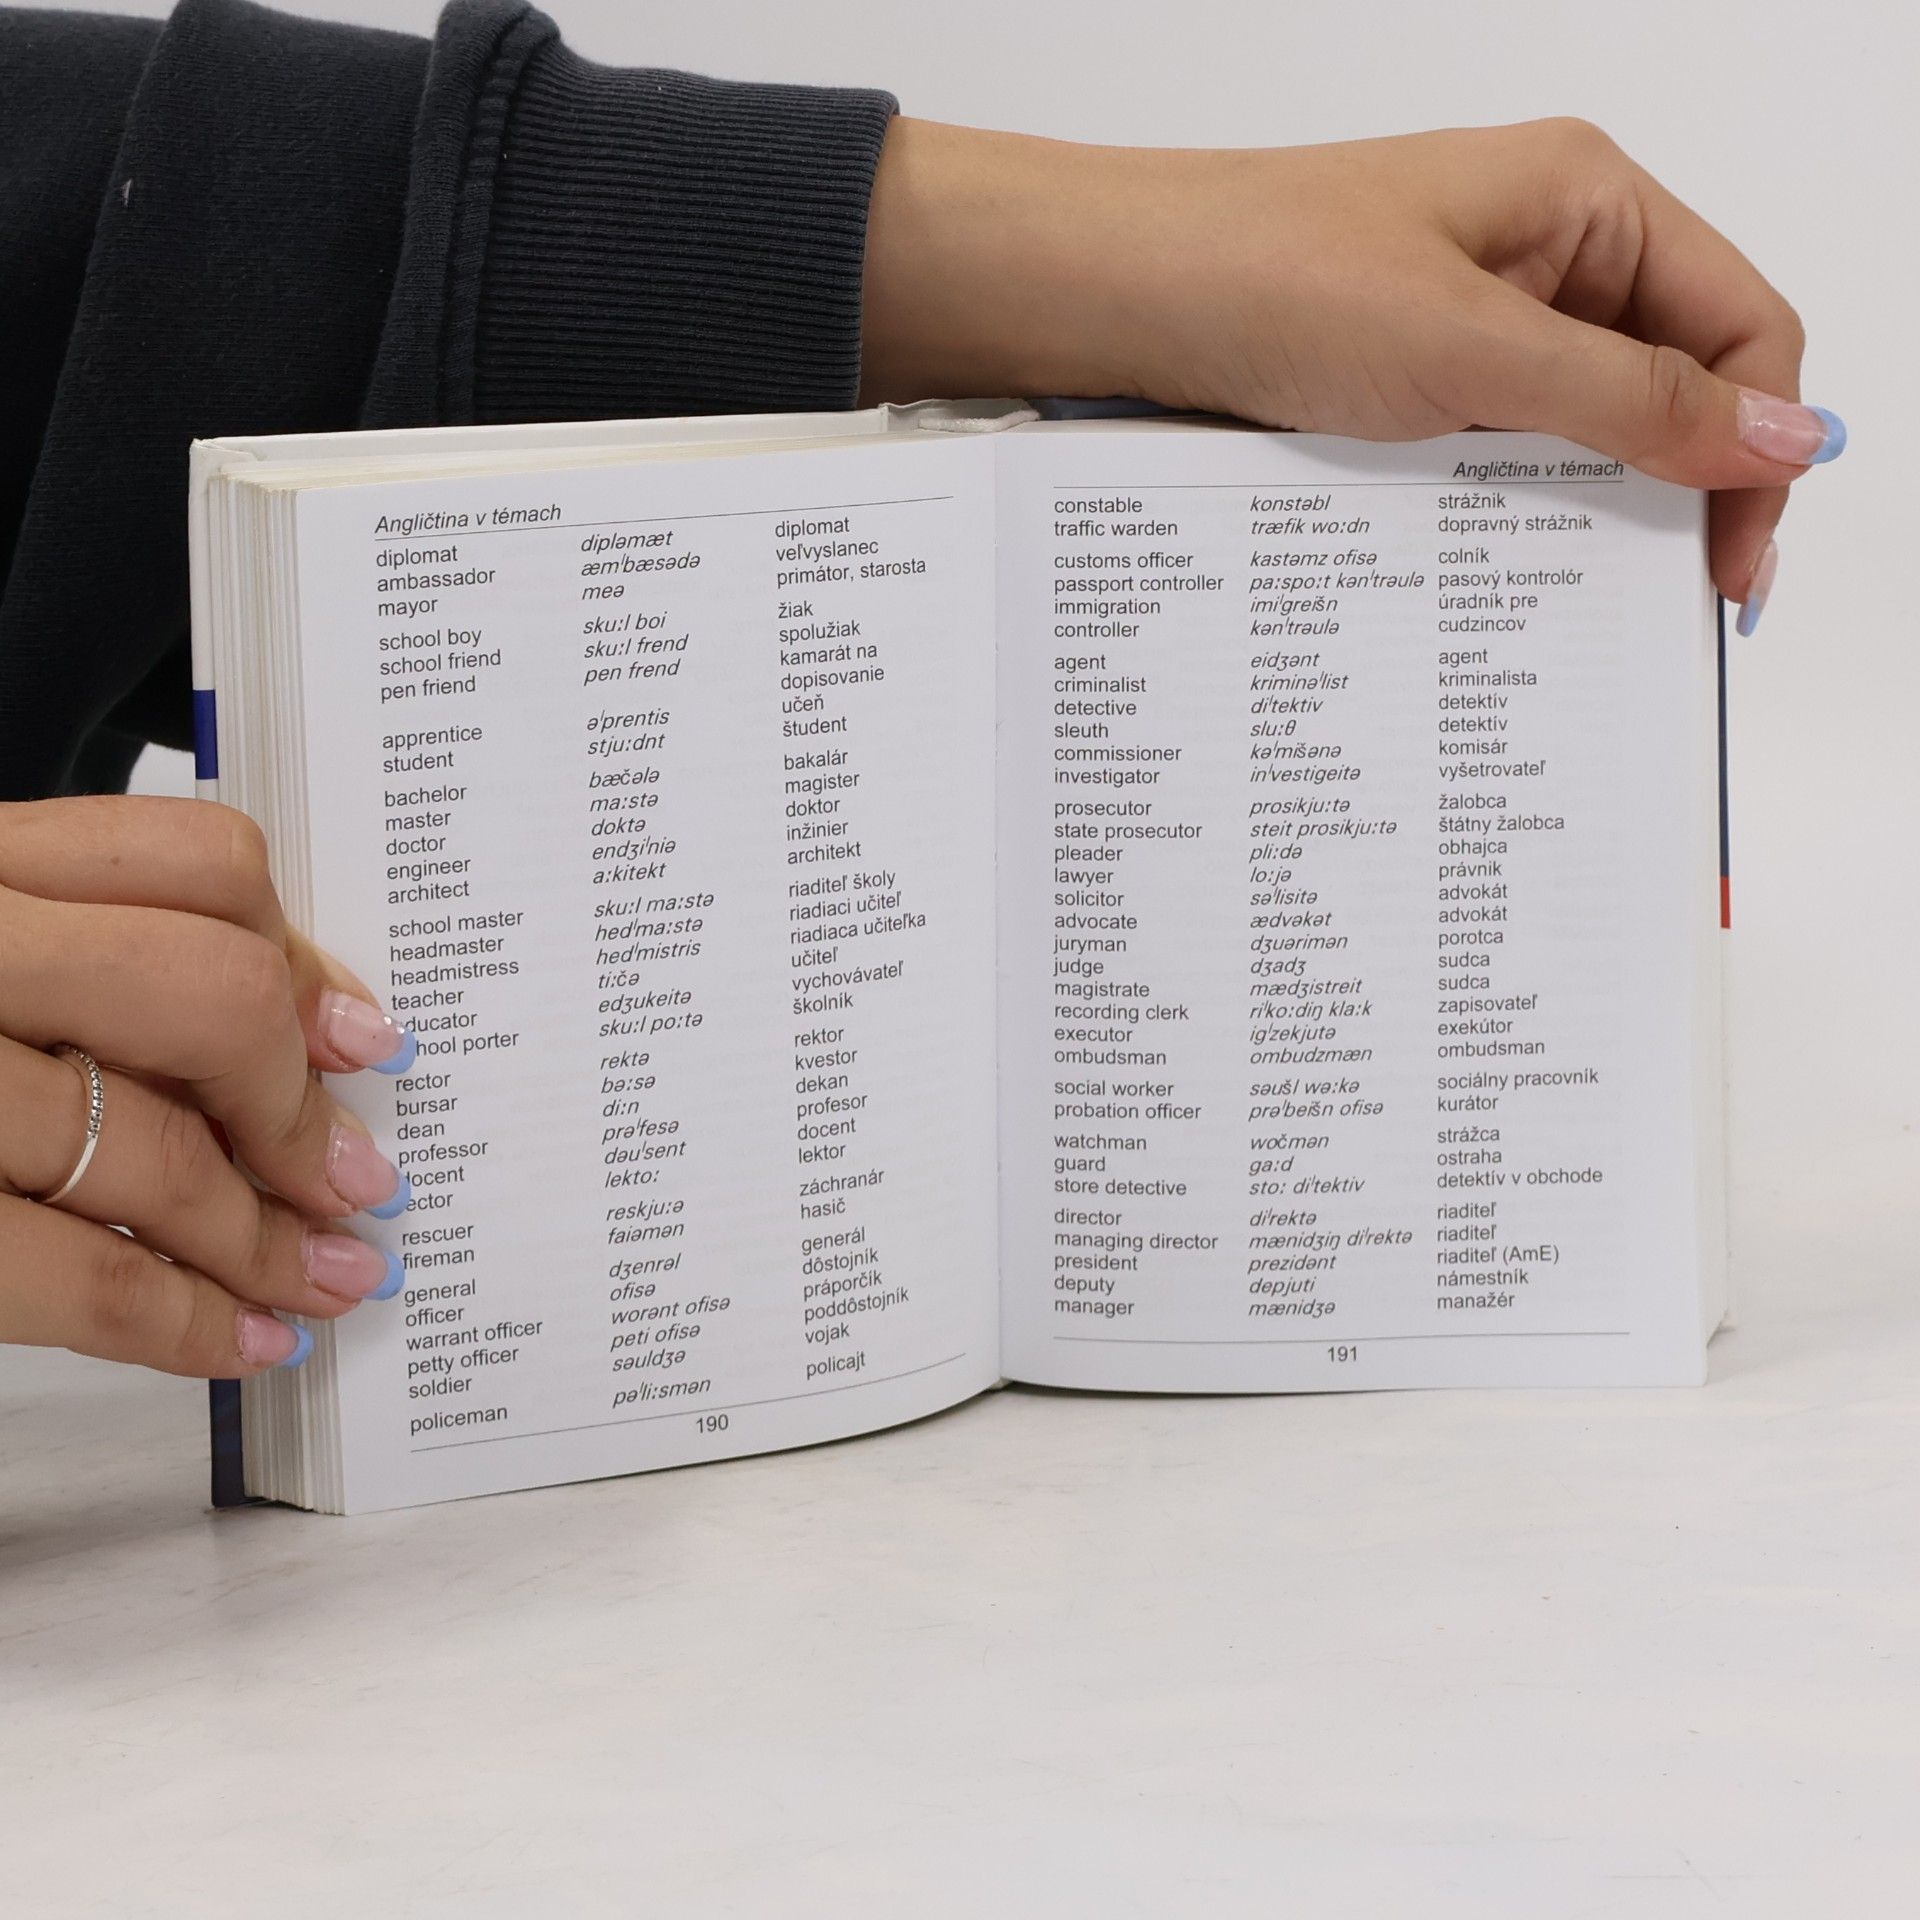 Angličtina v témach
diplomat dipləmæt diplomat
ambassador æmˈbæsədə veľvyslanec
mayor meə primátor, starosta
school boy sku:l boi žiak
school friend sku:l frend spolužiak
pen friend pen frend kamarát na
dopisovanie
apprentice əˈprentis učeň
student stju:dnt študent
bachelor bæčələ bakalár
master ma:stə magister
doctor doktə doktor
engineer endʒiˈniə inžinier
architect a:kitekt architekt
school master sku:l ma:stə riaditeľ školy
headmaster hedˈma:stə riadiaci učiteľ
headmistress hedˈmistris riadiaca učiteľka
teacher ti:čə učiteľ
ducator edʒukeitə vychovávateľ
hool porter sku:l po:tə školník
rector rektə rektor
bursar bə:sə kvestor
dean di:n dekan
professor prəˈfesə profesor
docent dəuˈsent docent
ector lekto: lektor
rescuer reskju:ə záchranár
fireman faiəmən hasič
general dʒenrəl generál
officer ofisə dôstojník
warrant officer worənt ofisə práporčík
petty officer peti ofisə poddôstojník
soldier səuldʒə vojak
policeman pəˈli:smən policajt
190
Angličtina v témach
constable konstəbl strážnik
traffic warden træfik wo:dn dopravný strážnik
customs officer kastəmz ofisə colník
passport controller pa:spo:t kənˈtrəulə pasový kontrolór
immigration imiˈgreišn úradník pre
controller kənˈtrəulə cudzincov
agent eidʒənt agent
criminalist kriminəˈlist kriminalista
detective diˈtektiv detektív
sleuth slu:θ detektív
commissioner kəˈmišənə komisár
investigator inˈvestigeitə vyšetrovateľ
prosecutor prosikju:tə žalobca
state prosecutor steit prosikju:tə štátny žalobca
pleader pli:də obhajca
lawyer lo:jə právnik
solicitor səˈlisitə advokát
advocate ædvəkət advokát
juryman dʒuərimən porotca
judge dʒadʒ sudca
magistrate mædʒistreit sudca
recording clerk riˈko:diŋ kla:k zapisovateľ
executor igˈzekjutə exekútor
ombudsman ombudzmæn ombudsman
social worker səušl wə:kə sociálny pracovník
probation officer prəˈbeišn ofisə kurátor
watchman wočmən strážca
guard ga:d ostraha
store detective sto: diˈtektiv detektív v obchode
director diˈrektə riaditeľ
managing director mænidʒiŋ diˈrektə riaditeľ
president prezidənt riaditeľ (AmE)
deputy depjuti námestník
manager mænidʒə manažér
191